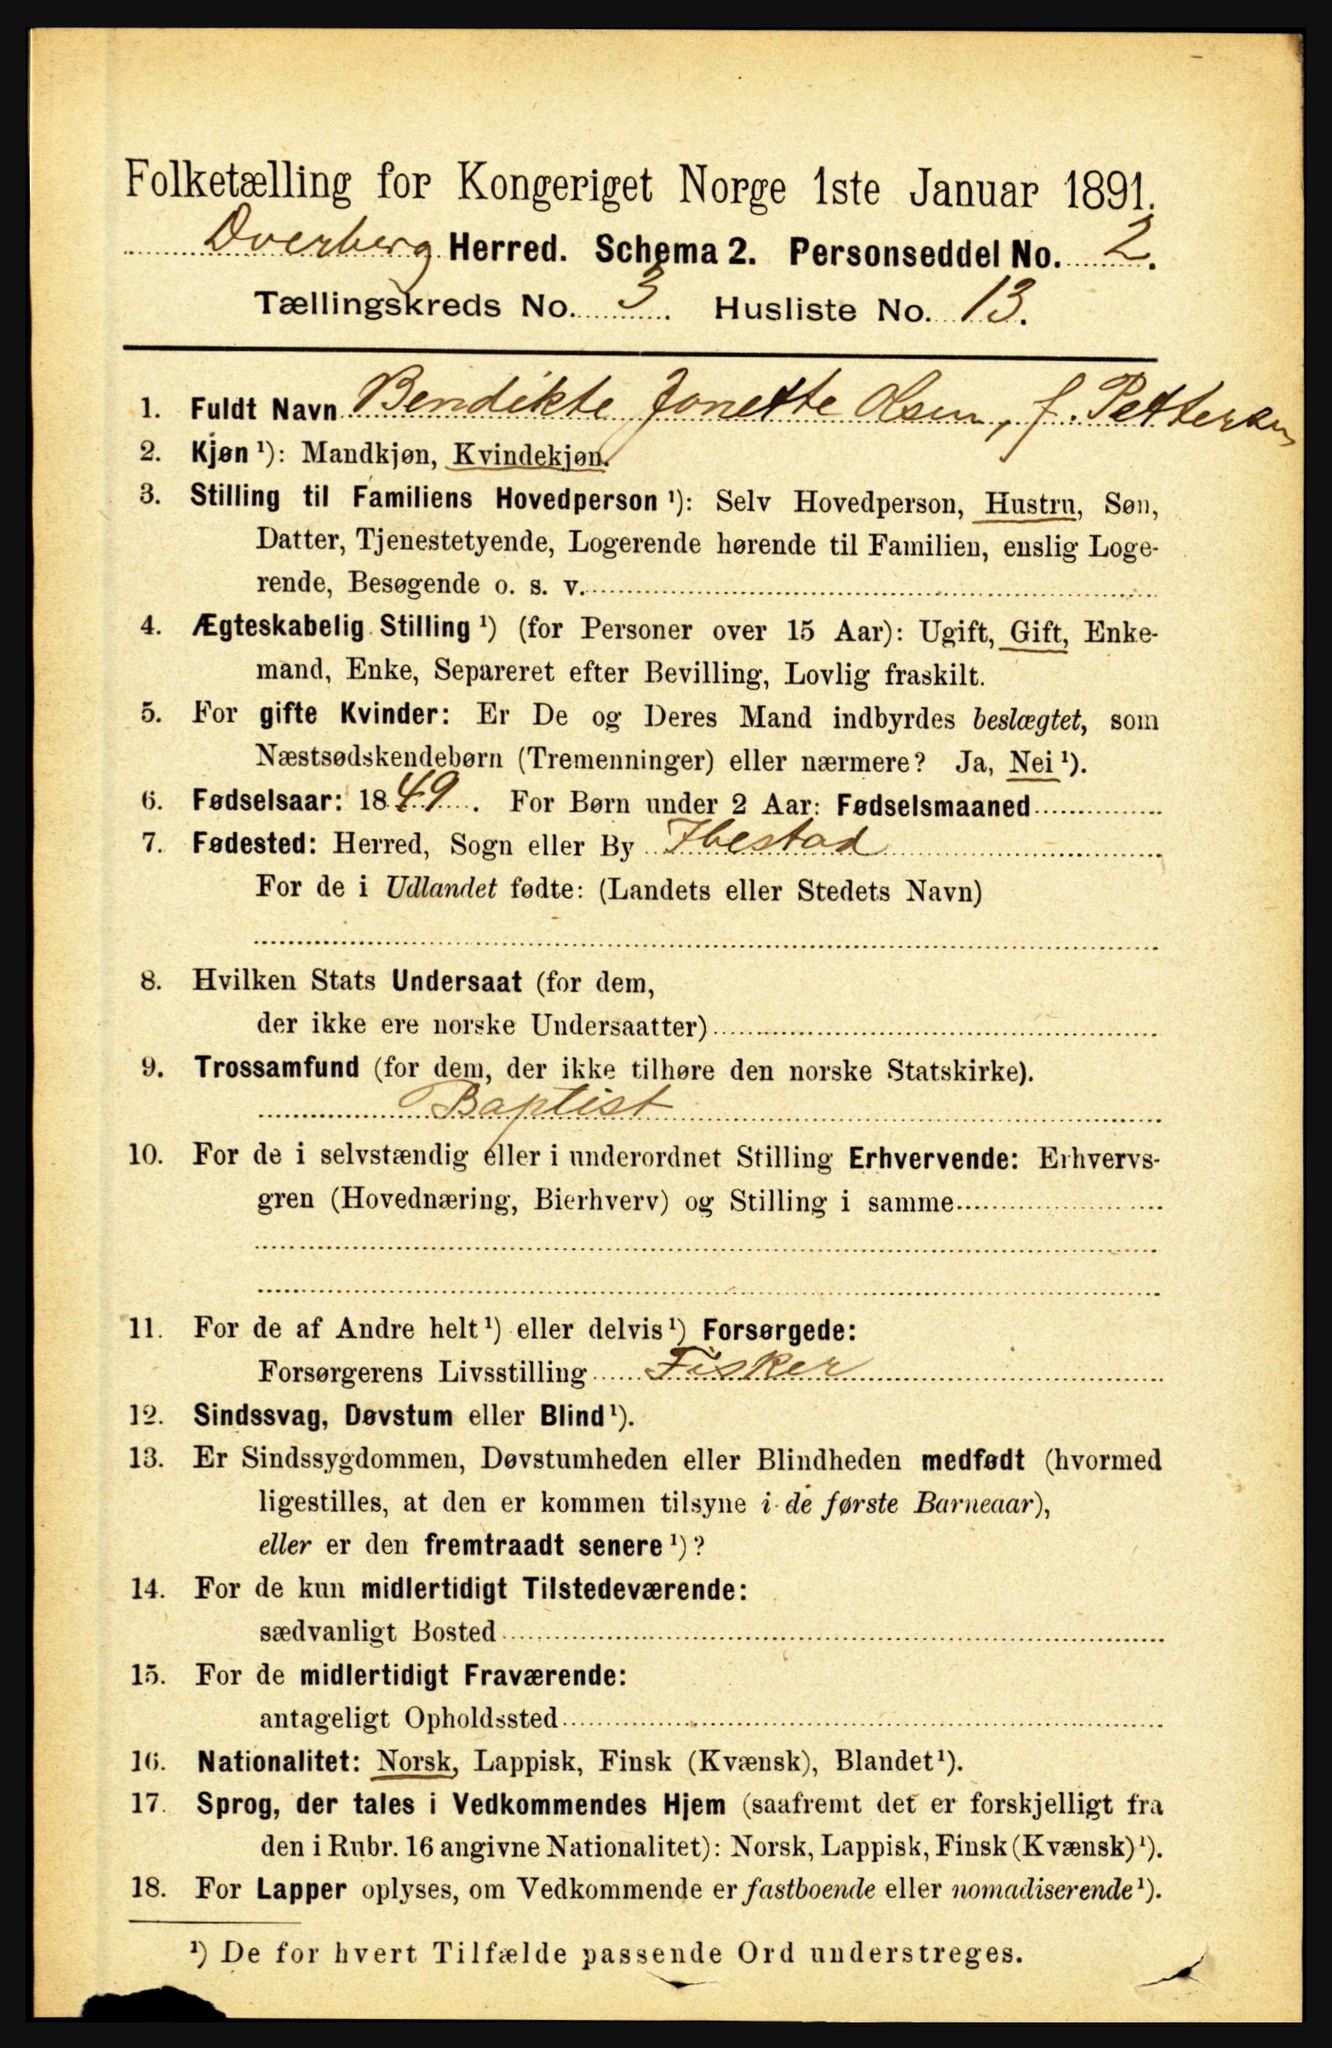 Folketælling for Kongeriget Norge 1ste Januar 1891.
Dverberg Herred. Schema 2. Personseddel No. 2.
Tællingskreds No. 3. Husliste No. 13.
1. Fuldt Navn Bendikte Jonette Olsen, f. Pettersen
2. Kjøn ¹): Mandkjøn, Kvindekjøn.
3. Stilling til Familiens Hovedperson ¹): Selv Hovedperson, Hustru, Søn,
Datter, Tjenestetyende, Logerende hørende til Familien, enslig Loge-
rende, Besøgende o. s. v.
4. Ægteskabelig Stilling ¹) (for Personer over 15 Aar): Ugift, Gift, Enke-
mand, Enke, Separeret efter Bevilling, Lovlig fraskilt.
5. For gifte Kvinder: Er De og Deres Mand indbyrdes beslægtet, som
Næstsødskendebørn (Tremenninger) eller nærmere? Ja, Nei ¹).
6. Fødselsaar: 1849. For Børn under 2 Aar: Fødselsmaaned
7. Fødested: Herred, Sogn eller By Ibestad
For de i Udlandet fødte: (Landets eller Stedets Navn)
8. Hvilken Stats Undersaat (for dem,
der ikke ere norske Undersaatter)
9. Trossamfund (for dem, der ikke tilhøre den norske Statskirke).
Baptist
10. For de i selvstændig eller i underordnet Stilling Erhvervende: Erhvervs-
gren (Hovednæring, Bierhverv) og Stilling i samme
11. For de af Andre helt ¹) eller delvis ¹) Forsørgede:
Forsørgerens Livsstilling Fisker
12. Sindssvag, Døvstum eller Blind ¹).
13. Er Sindssygdommen, Døvstumheden eller Blindheden medfødt (hvormed
ligestilles, at den er kommen tilsyne i de første Barneaar),
eller er den fremtraadt senere ¹)?
14. For de kun midlertidigt Tilstedeværende:
sædvanligt Bosted
15. For de midlertidigt Fraværende:
antageligt Opholdssted
16. Nationalitet: Norsk, Lappisk, Finsk (Kvænsk), Blandet ¹).
17. Sprog, der tales i Vedkommendes Hjem (saafremt det er forskjelligt fra
den i Rubr. 16 angivne Nationalitet): Norsk, Lappisk, Finsk (Kvænsk) ¹).
18. For Lapper oplyses, om Vedkommende er fastboende eller nomadiserende ¹).
¹) De for hvert Tilfælde passende Ord understreges.